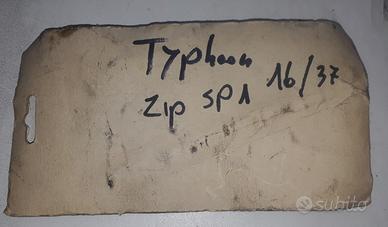 Typhoon
zip sp1 16/37
subito